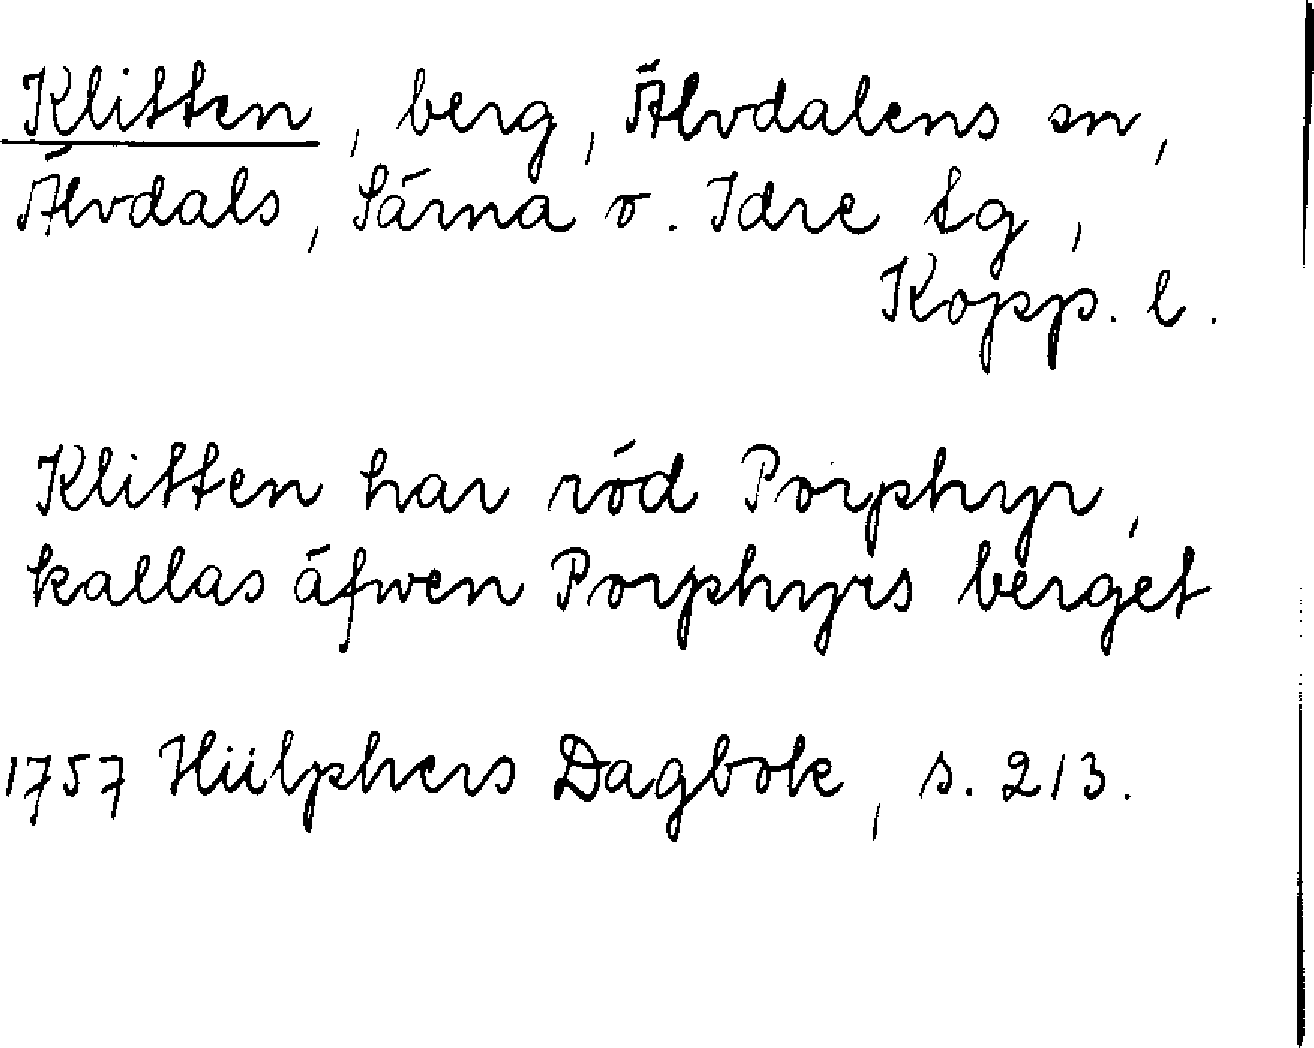 Klitten, berg, Älvdalens sn,
Älvdals, Särna o. Idre tg,
Kopp. l.
Klitten har röd Porphyr,
kallas äfwen Porphyrs berget
1757 Hülphers Dagbok, s. 213.